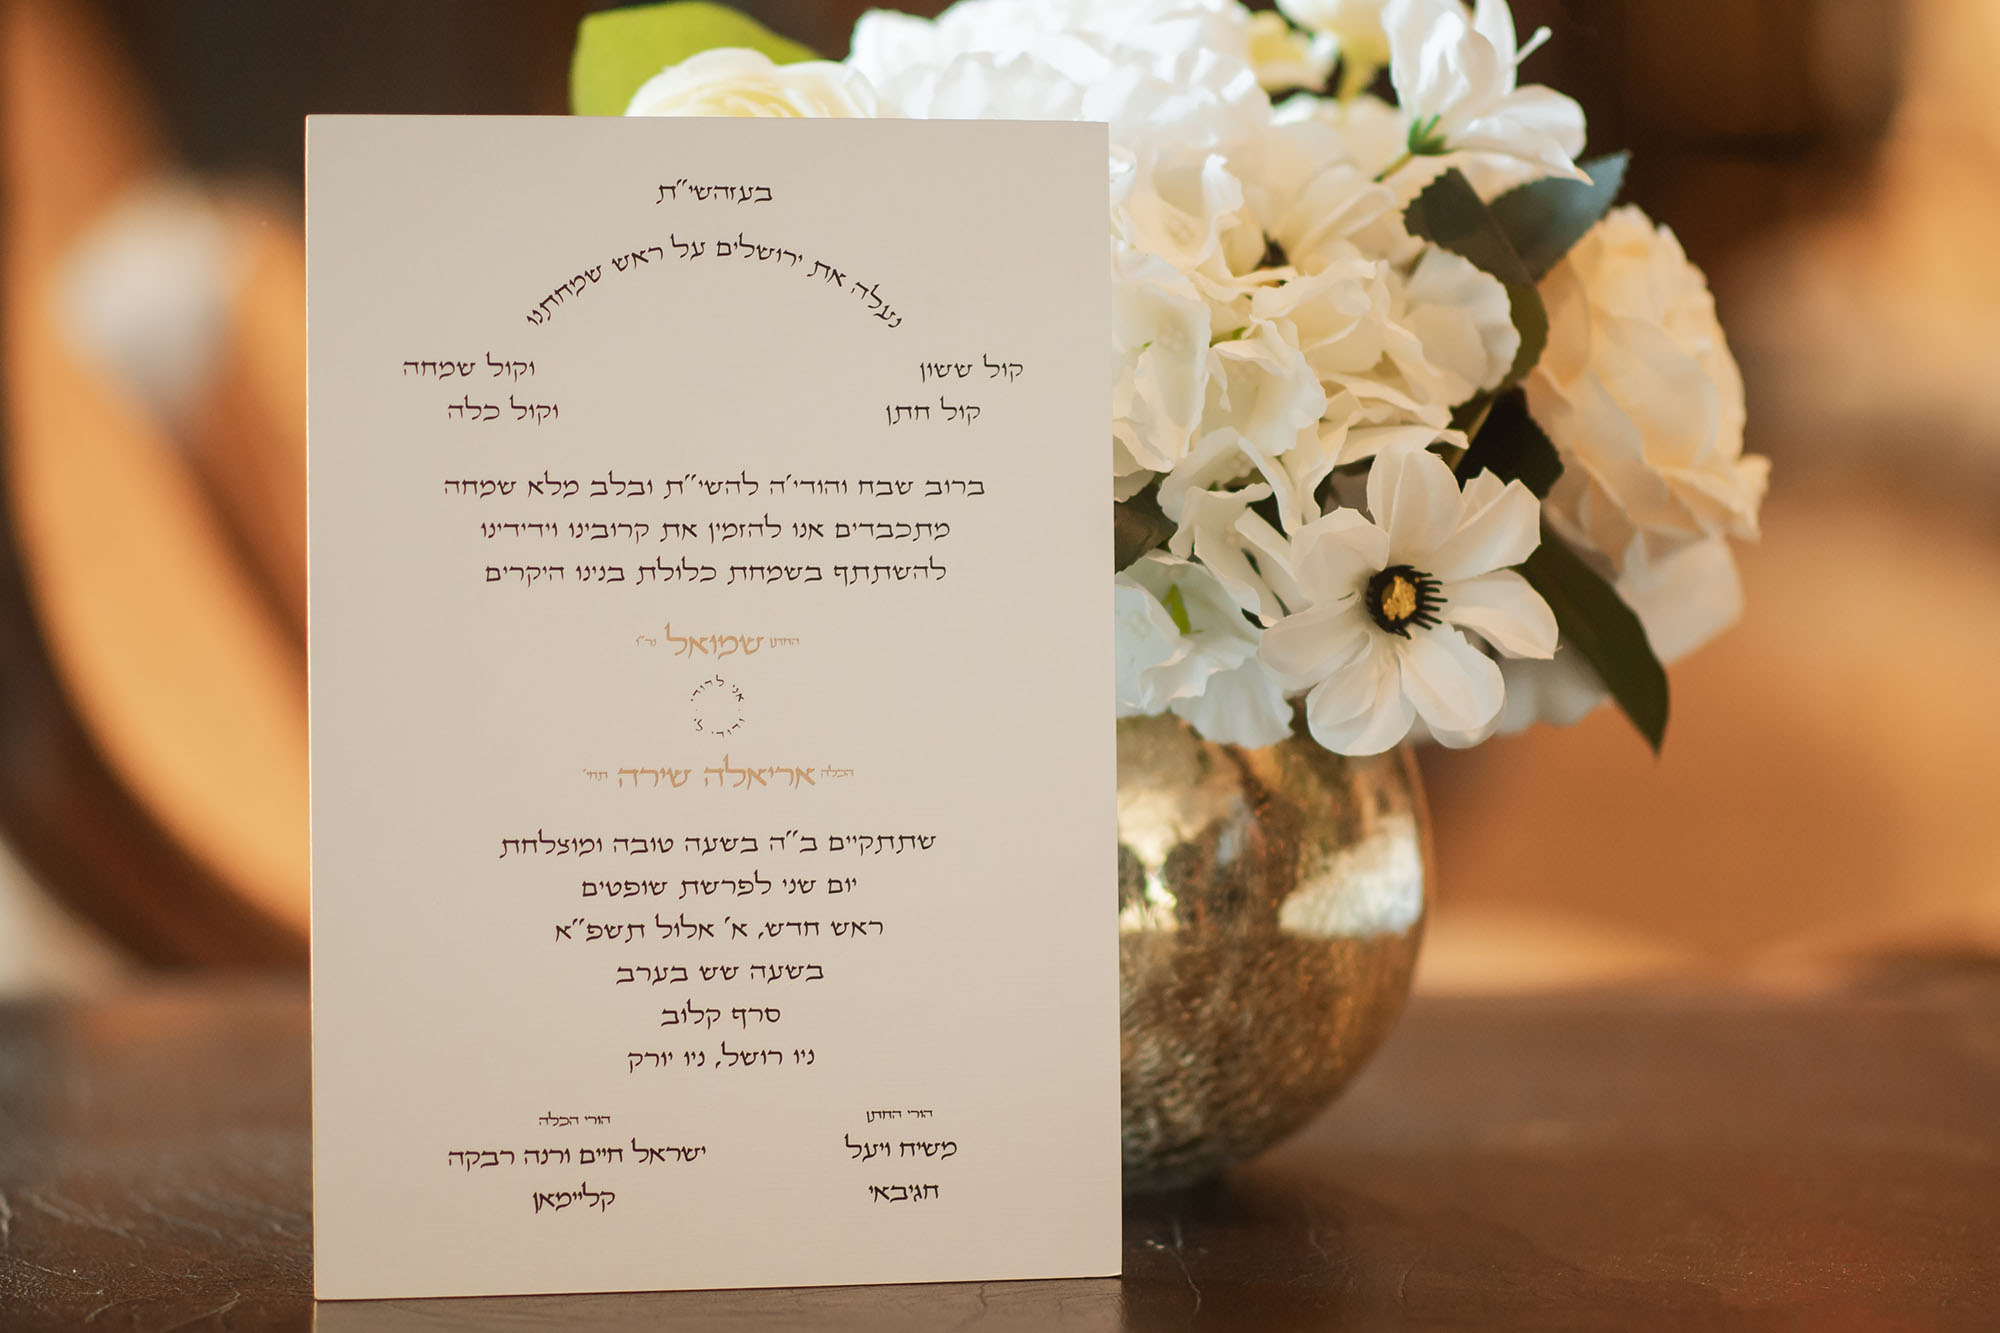 בעזהשי״ת
נעלה את ירושלים על ראש שמחתנו
קול ששון וקול שמחה
קול חתן וקול כלה
ברוב שבח והודי׳ה להשי״ת ובלב מלא שמחה
מתכבדים אנו להזמין את קרובינו וידידינו
להשתתף בשמחת כלולת בנינו היקרים
החתן שמואל נר״ו
אני לדודי ודודי לי
הכלה אריאלה שירה תחי׳
שתתקיים ב״ה בשעה טובה ומוצלחת
יום שני לפרשת שופטים
ראש חדש, א׳ אלול תשפ״א
בשעה שש בערב
סרף קלוב
ניו רושל, ניו יורק
הורי החתן
משיח ויעל
חגיבאי
הורי הכלה
ישראל חיים ורנה רבקה
קליימאן